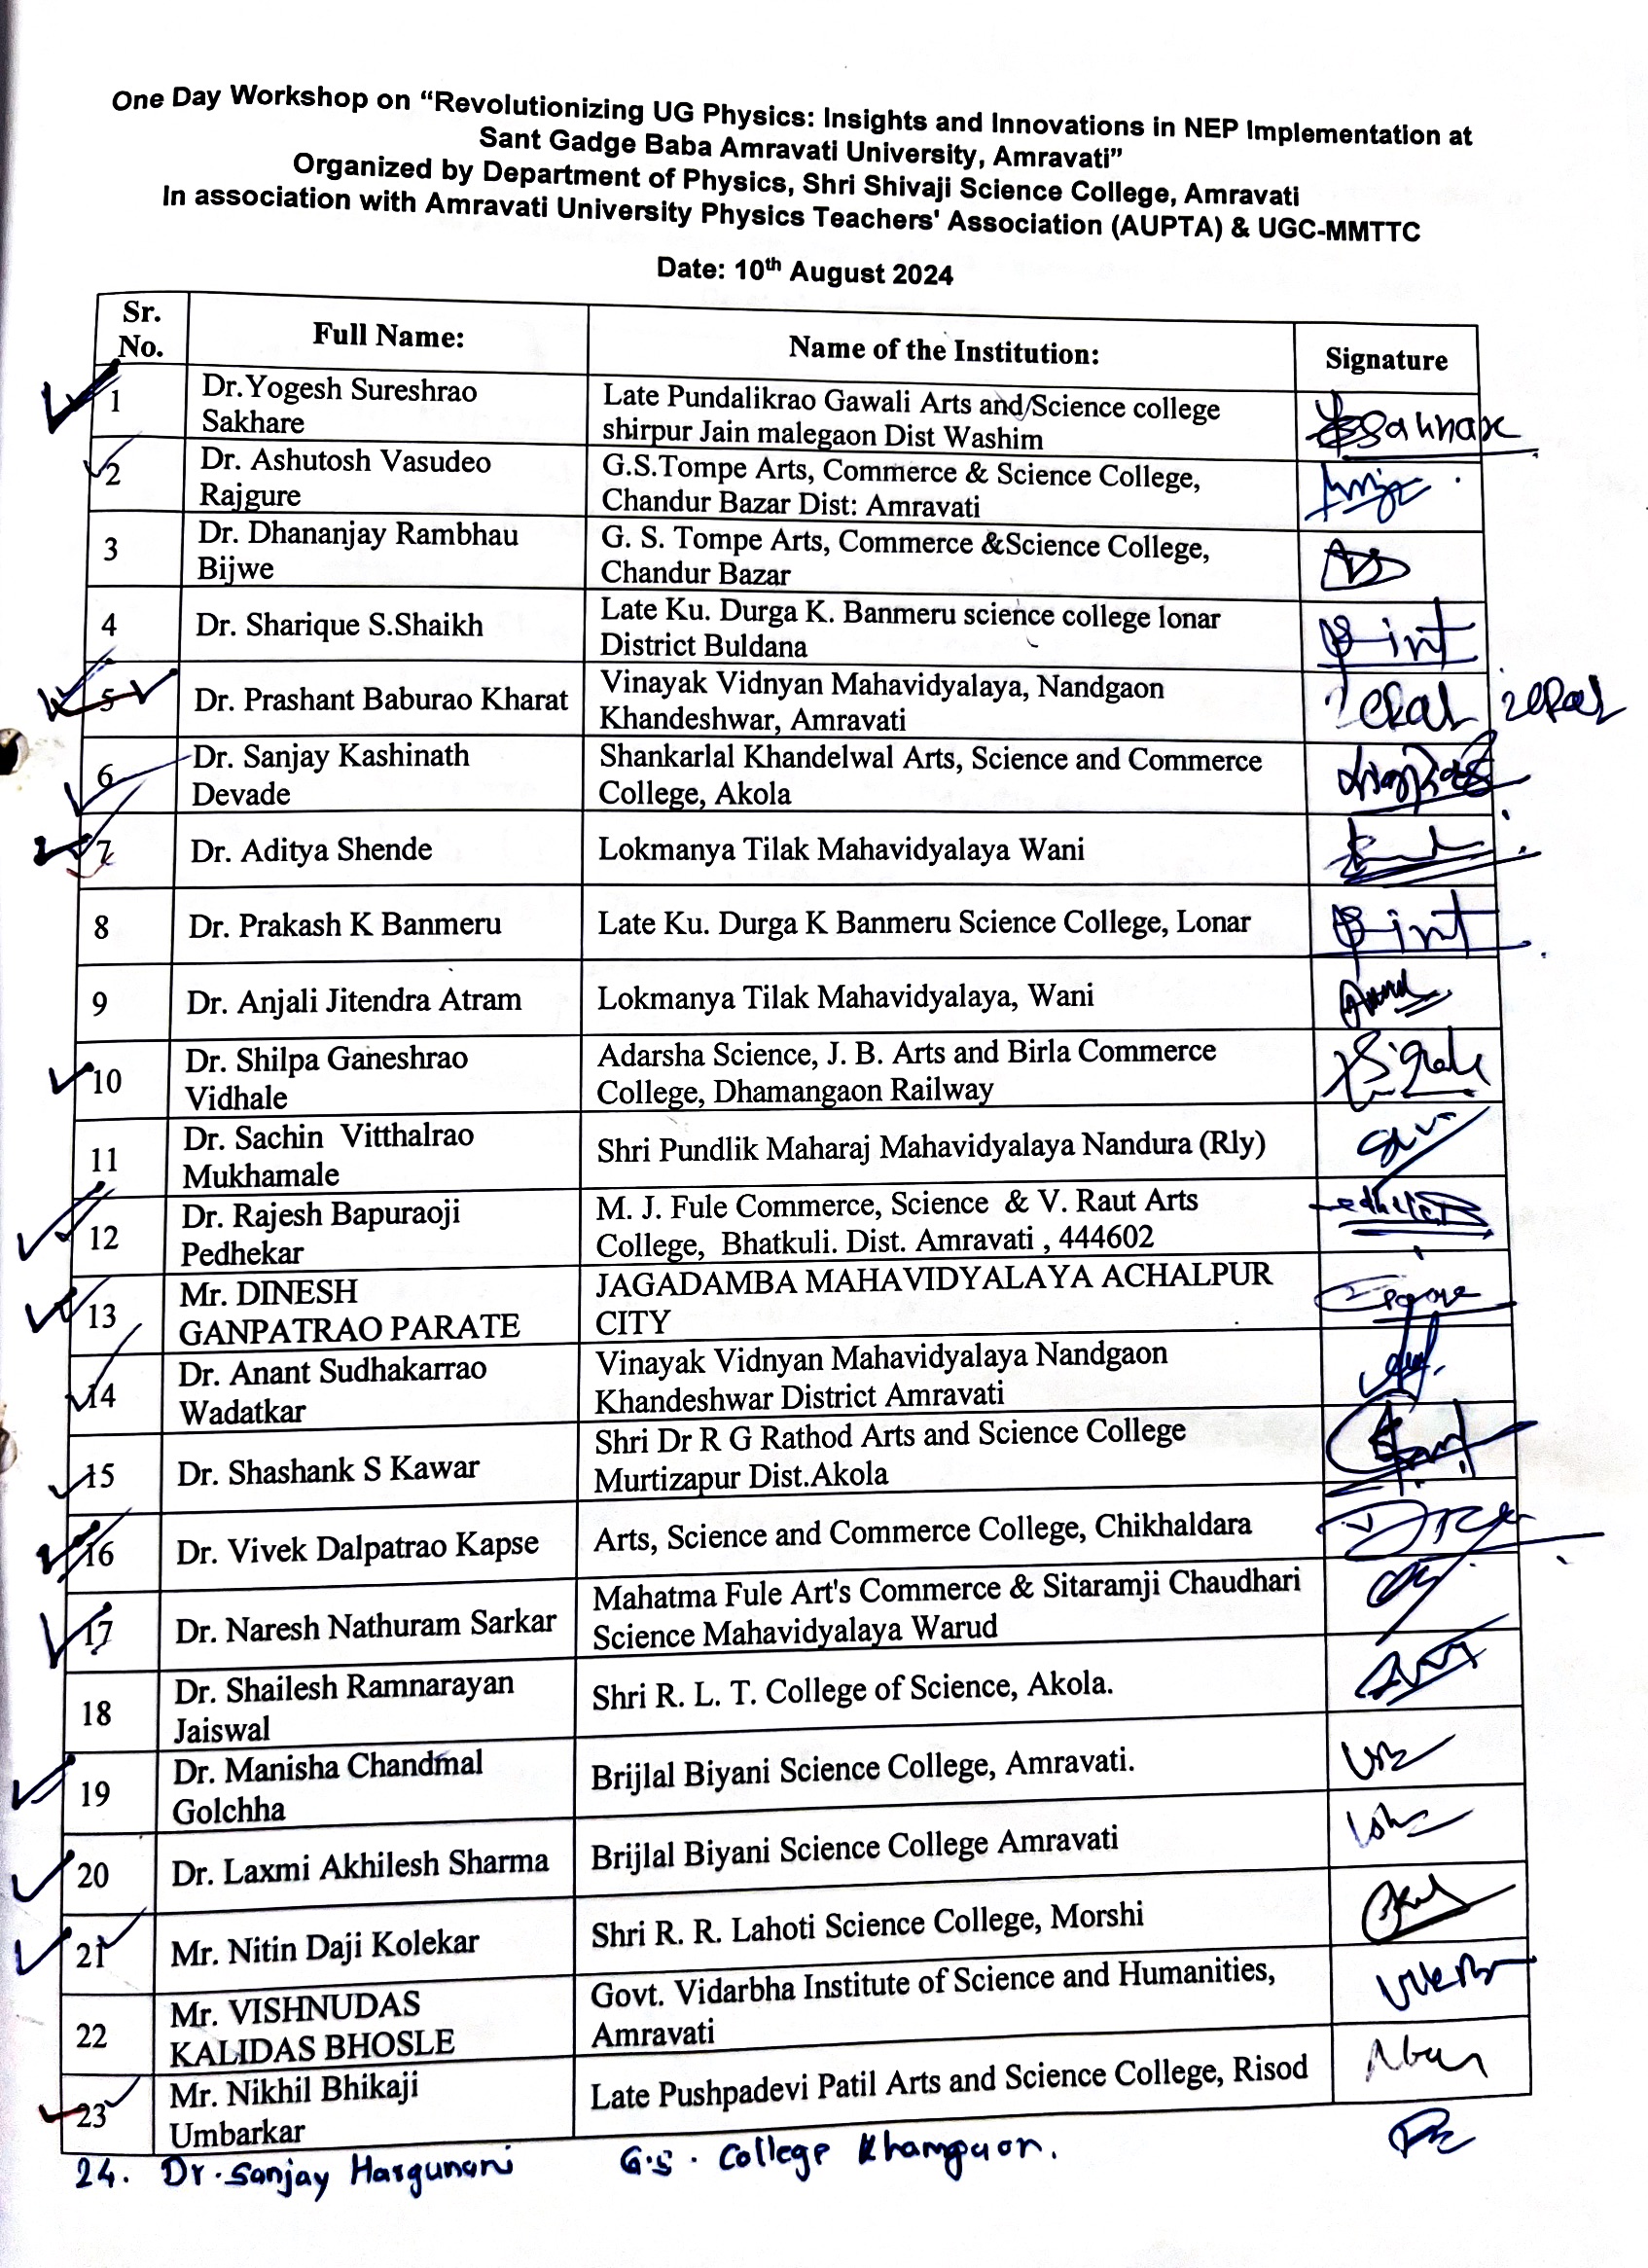 One Day Workshop on “Revolutionizing UG Physics: Insights and Innovations in NEP Implementation at
Sant Gadge Baba Amravati University, Amravati”
Organized by Department of Physics, Shri Shivaji Science College, Amravati
In association with Amravati University Physics Teachers' Association (AUPTA) & UGC-MMTTC
Date: 10th August 2024
Sr. No. Full Name: Name of the Institution: Signature
1 Dr.Yogesh Sureshrao Late Pundalikrao Gawali Arts and Science college
Sakhare shirpur Jain malegaon Dist Washim
2 Dr. Ashutosh Vasudeo G.S.Tompe Arts, Commerce & Science College,
Rajgure Chandur Bazar Dist: Amravati
3 Dr. Dhananjay Rambhau G. S. Tompe Arts, Commerce &Science College,
Bijwe Chandur Bazar
4 Dr. Sharique S.Shaikh Late Ku. Durga K. Banmeru science college lonar
District Buldana
5 Dr. Prashant Baburao Kharat Vinayak Vidnyan Mahavidyalaya, Nandgaon
Khandeshwar, Amravati
6 Dr. Sanjay Kashinath Shankarlal Khandelwal Arts, Science and Commerce
Devade College, Akola
7 Dr. Aditya Shende Lokmanya Tilak Mahavidyalaya Wani
8 Dr. Prakash K Banmeru Late Ku. Durga K Banmeru Science College, Lonar
9 Dr. Anjali Jitendra Atram Lokmanya Tilak Mahavidyalaya, Wani
10 Dr. Shilpa Ganeshrao Adarsha Science, J. B. Arts and Birla Commerce
Vidhale College, Dhamangaon Railway
11 Dr. Sachin Vitthalrao Shri Pundlik Maharaj Mahavidyalaya Nandura (Rly)
Mukhamale
12 Dr. Rajesh Bapuraoji M. J. Fule Commerce, Science & V. Raut Arts
Pedhekar College, Bhatkuli. Dist. Amravati , 444602
13 Mr. DINESH JAGADAMBA MAHAVIDYALAYA ACHALPUR
GANPATRAO PARATE CITY
14 Dr. Anant Sudhakarrao Vinayak Vidnyan Mahavidyalaya Nandgaon
Wadatkar Khandeshwar District Amravati
15 Dr. Shashank S Kawar Shri Dr R G Rathod Arts and Science College
Murtizapur Dist.Akola
16 Dr. Vivek Dalpatrao Kapse Arts, Science and Commerce College, Chikhaldara
17 Dr. Naresh Nathuram Sarkar Mahatma Fule Art's Commerce & Sitaramji Chaudhari
Science Mahavidyalaya Warud
18 Dr. Shailesh Ramnarayan Shri R. L. T. College of Science, Akola.
Jaiswal
19 Dr. Manisha Chandmal Brijlal Biyani Science College, Amravati.
Golchha
20 Dr. Laxmi Akhilesh Sharma Brijlal Biyani Science College Amravati
21 Mr. Nitin Daji Kolekar Shri R. R. Lahoti Science College, Morshi
22 Mr. VISHNUDAS Govt. Vidarbha Institute of Science and Humanities,
KALIDAS BHOSLE Amravati
23 Mr. Nikhil Bhikaji Late Pushpadevi Patil Arts and Science College, Risod
Umbarkar
24. Dr. Sanjay Hargunani G.S. College Khamgaon.